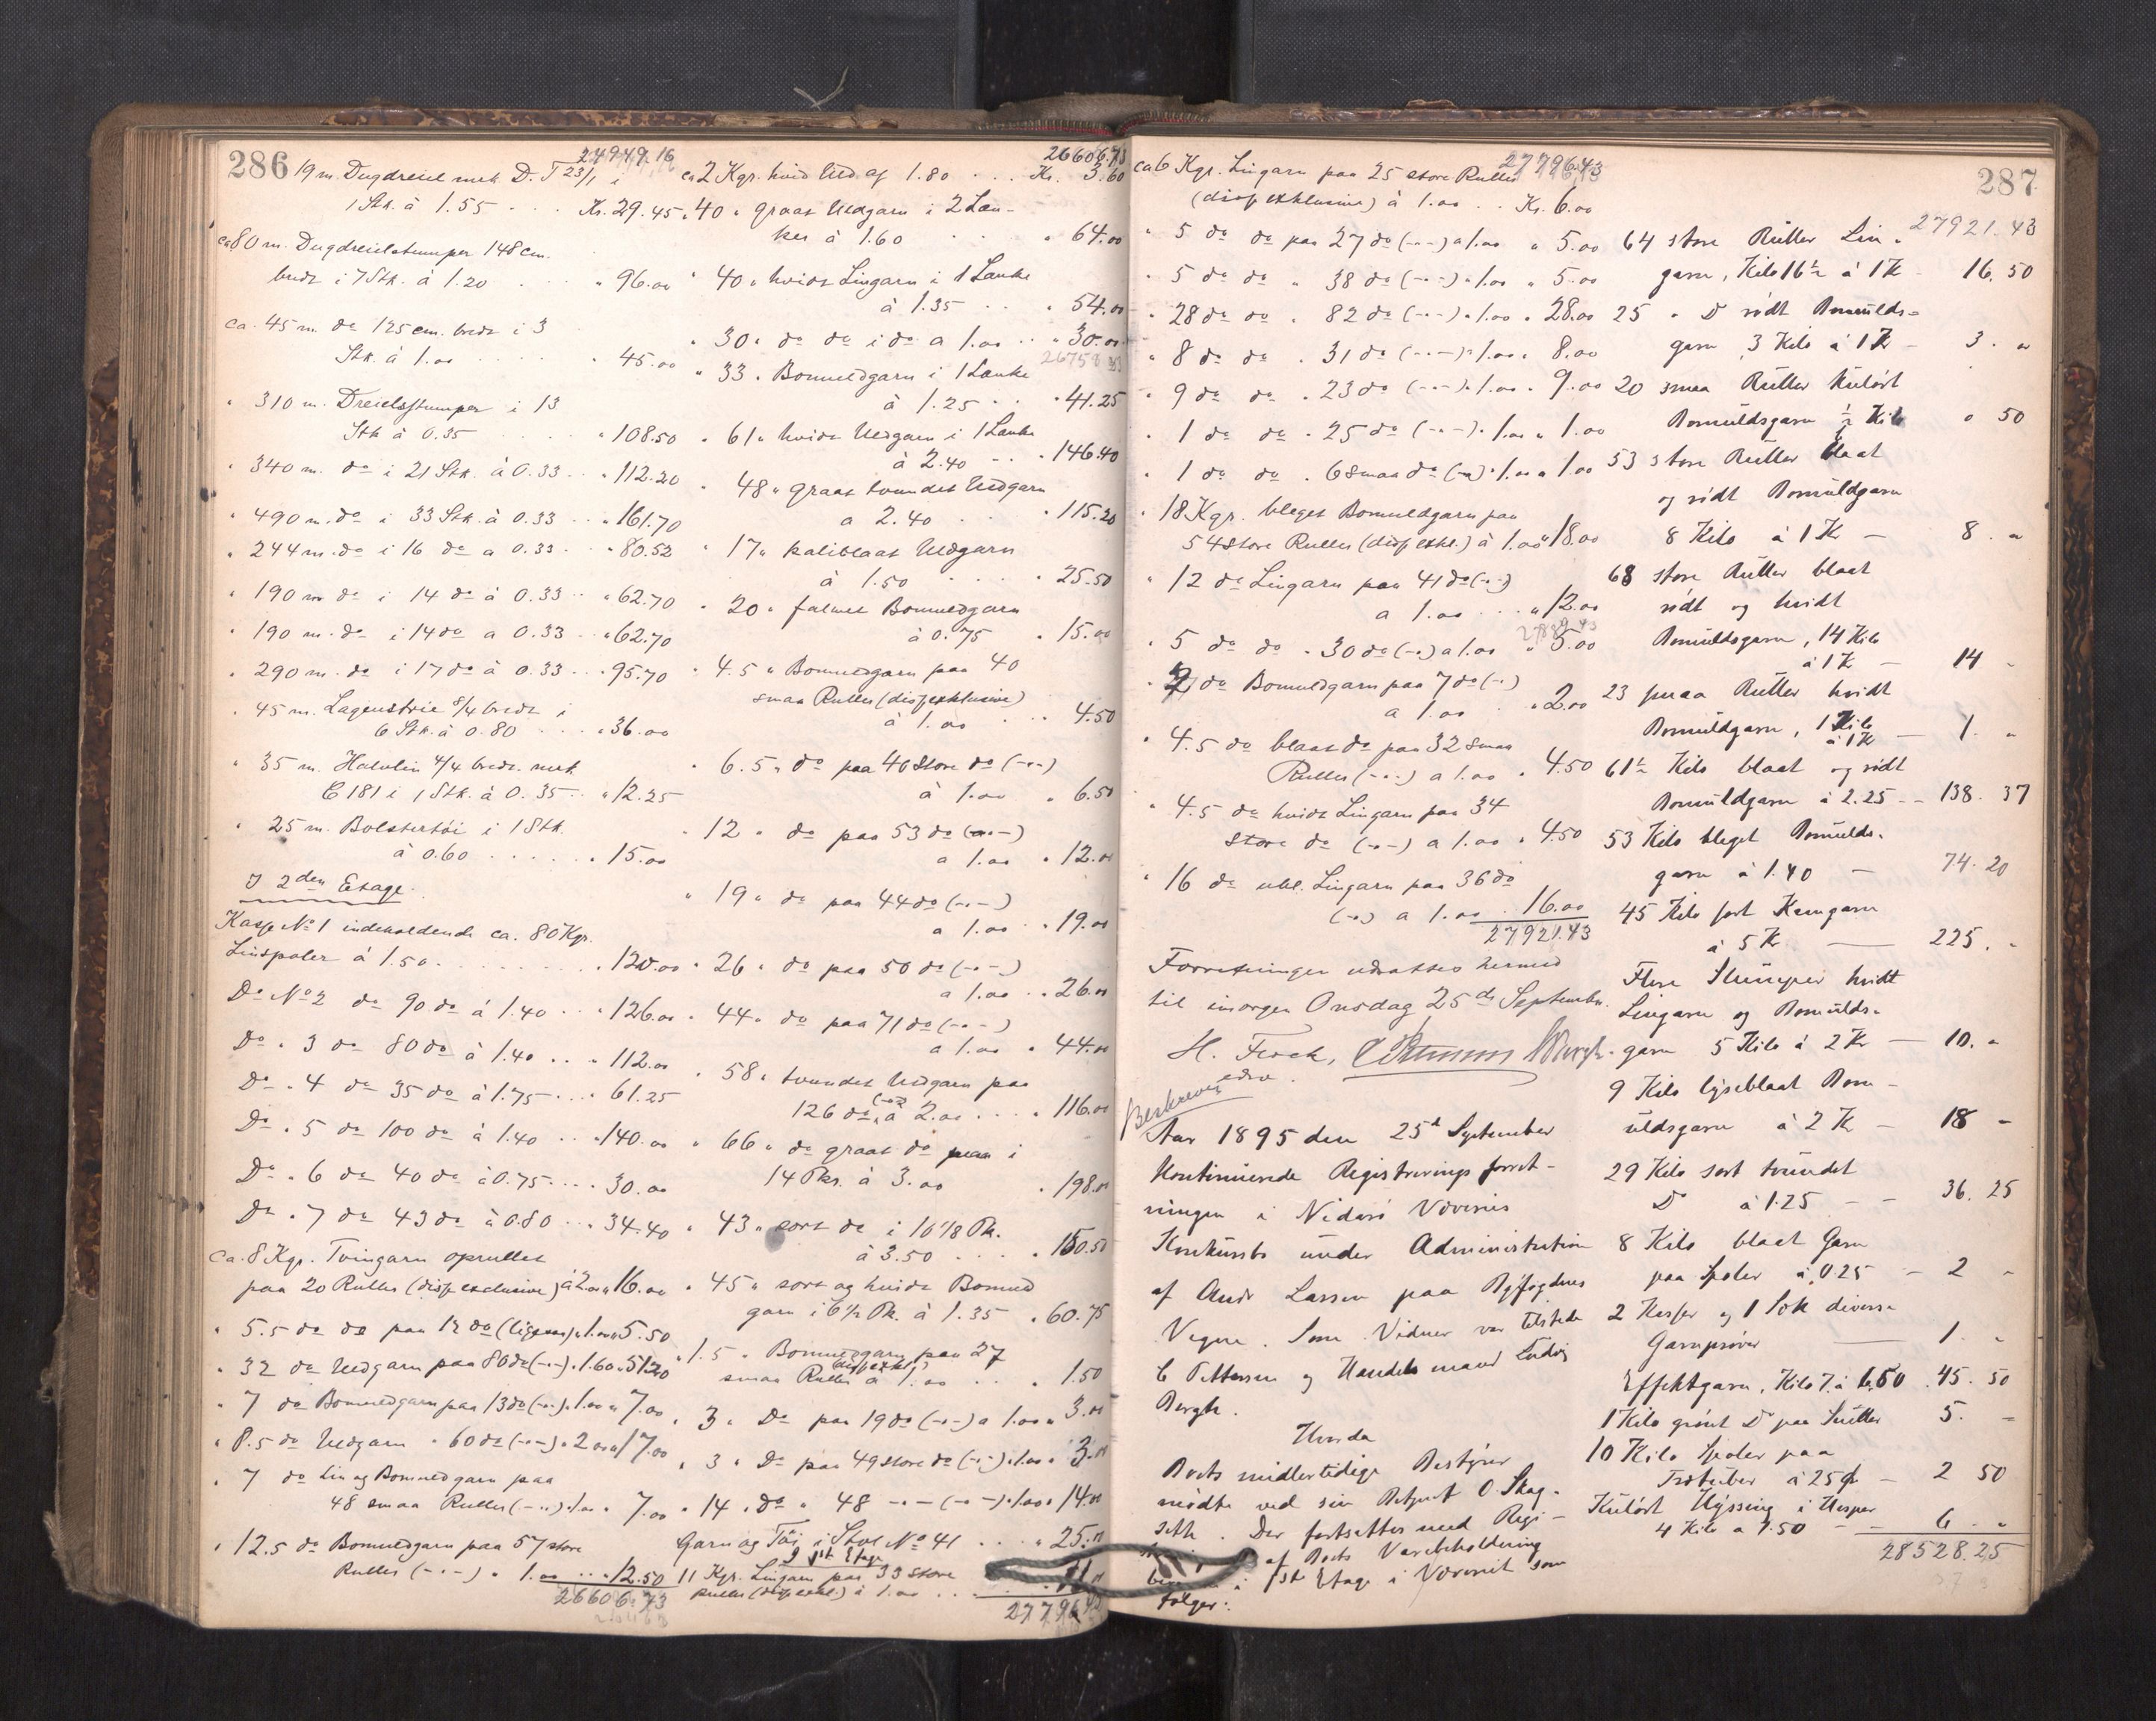 286
24949.16
19 m. Dugdreiel mrk. D. T 23/1 i
1 Stk. à 1.55 . . . Kr. 29.45
ca 80 m. Dugdreielstumper 148 cm.
bredt i 7 Stk. à 1.20 . . . " 96.00
ca. 45 m. do 125 cm. bredt i 3
Stk. à 1.00 . . . " 45.00
" 310 m. Dreielsstumper i 13
Stk à 0.35 . . . " 108.50
" 340 m. do i 21 Stk. à 0.33 . . " 112.20
" 490 m. do i 33 Stk. à 0.33 . . " 161.70
" 244 m. do i 16 do a 0.33 . . . " 80.52
" 190 m do i 14 do à 0.33 . . " 62.70
" 190 m. do i 14 do a 0.33 . . " 62.70
" 290 m. do i 17 do à 0.33 . . . 95.70
" 45 m. Lagenstrie 8/4 bredt i
6 Stk. à 0.80 . . . " 36.00
" 35 m. Halvlin 4/4 bredt. mrk.
C 181 i 1 Stk. à 0.35 . . " 12.25
" 25 m. Bolstertöi i 1 Stk.
à 0.60 . . . . . " 15.00
I 2den Etage.
Kasse No 1 indeholdende ca. 80 Kgr.
Linspoler à 1.50 . . . . . " 120.00
Do No 2 do 90 do à 1.40 . . . " 126.00
Do " 3 do 80 do à 1.40 . . . " 112.00
Do " 4 do 35 do à 1.75 . . . " 61.25
Do " 5 do 100 do à 1.40 . . " 140.00
Do " 6 do 40 do à 0.75 . . . . 30.00
Do " 7 do 43 do à 0.80 . . . " 34.40
ca. 8 Kgr. Tvingarn oprullet
paa 20 Ruller (disp exclusive) à 2.00 " 16.00
" 5.5 do do paa 12 do (ligesaa) " 1.00 " 5.50
" 32 do Uldgarn paa 80 do (-"-) " 1.60 " 51.20
" 7 do Bomuldgarn paa 13 do (-"-) " 1.00 " 7.00
" 8.5 do Uldgarn " 60 do (-"-) " 2.00 " 17.00
" 7 do Lin og Bomuldgarn paa
48 smaa Ruller (-"-) " 1.00 " 7.00
" 12.5 do Bomuldgarn paa 57 store
Ruller (-"-) " 1.00 . . . 12.50
26606.73
26606.73
ca 2 Kgr. hvid Uld af 1.80 . . . Kr. 3.60
" 40 " graat Uldgarn i 2 Lan-
ker à 1.60 . . . " 64.00
" 40 " hvidt Lingarn i 1 Lanke
à 1.35 . . . " 54.00
" 30 " do do i do a 1.00 . . " 30.00
" 33 " Bomuldgarn i 1 Lanke
à 1.25 . . " 41.25
" 61 " hvidt Uldgarn i 1 Lanke
à 2.40 . . . " 146.40
" 48 " graat tvundet Uldgarn
a 2.40 . . . " 115.20
" 17 " kaliblaat Uldgarn
à 1.50 . . . . " 25.50
" 20 " falmet Bomuldgarn
à 0.75 " 15.00
" 4.5 " Bomuldgarn paa 40
smaa Ruller (disp exklusive)
à 1.00 . . . 4.50
" 6.5 " do paa 46 store do (-"-)
à 1.00 " 6.50
" 12 " do paa 53 do (-"-)
a 1.00 " 12.00
" 19 " do paa 44 do (-"-)
a 1.00 . " 19.00
" 26 " do paa 50 do (-"-)
a 1.00 . . " 26.00
" 44 " do paa 71 do (-"-)
a 1.00 " 44.00
" 58 " tvundet Uldgarn paa
126 do (-"-) à 2.00 . . . . " 116.00
" 66 " do graat do paa i
14 Pkr. à 3.00 " 198.00
" 43 " sort do i 10 1/8 Pk.
à 3.50 . . . " 150.50
" 45 " sort og hvidt Bomuld
garn i 6 1/2 Pk. à 1.35 " 60.75
" 1.5 " Bomuldgarn paa 27
smaa Ruller (disp exkl) à 1.00 . . " 1.50
" 3 " Do paa 19 do (-"-) a 1.00 " 3.00
" 3 " Do paa 49 store do (-"-) " 1.00 " 3.00
" 14 " do " 48 -"- (-"-) " 1.00 " 14.00
Garn og Töi i Stol No 41 . . . . " 25.00
I 1st Etage
11 Kgr. Lingarn paa 33 store
Ruller (disp exkl.) à 1.00 . . . 11.00
27796.43
287
27796.43
ca 6 Kgr. Lingarn paa 25 store Ruller
(disp exklusive) à 1.00 . . Kr. 6.00
" 5 do do paa 27 do (-"-) a 1.00 " 5.00
" 5 do do " 38 do (-"-) " 1.00 " 5.00
" 28 do do " 82 do (-"-) " 1.00 " 28.00
" 8 do do " 31 do (-"-) " 1.00 " 8.00
" 9 do do " 23 do (-"-) " 1.00 " 9.00
" 1 do do " 25 do (-"-) " 1.00 " 1.00
" 1 do do " 68 smaa do (-"-) " 1.00 " 1.00
" 18 Kgr. bleget Bomuldgarn paa
54 store Ruller (disp exkl.) à 1.00 " 18.00
" 12 do Lingarn paa 41 do (-"-)
a 1.00 . . . " 12.00
" 5 do do " 30 do (-"-) a 1.00 " 5.00
" 2 do Bomuldgarn paa 7 do (-"-)
a 1.00 . " 2.00
" 4.5 do blaat do paa 32 smaa
Ruller (-"-) a 1.00 " 4.50
" 4.5 do hvidt Lingarn paa 34
store do (-"-) a 1.00 " 4.50
" 16 do ubl. Lingarn paa 36 do
(-"-) a 1.00 . 16.00
27921.43
Forretningen udsattes hermed
til imorgen Onsdag 25de September.
H. Fleck,
Beskreven
Aar 1895 den 25d September
kontinuerede Registreringsforret-
ningen i Nidarö Væveris
Konkursbo under Administration
af Andr Larssen paa Byfogdens
Vegne. Som Vidner var tilstede
C Pettersen og Handelsmand Ludvig
Bergh.
Hvorda
Boets midlertidige Bestyrer
mødte ved sin Betjent O. Skag-
seth. Der fortsattes med Regi-
af Boets Varebeholdning
i 1ste Etage i Væveriet som
følger:
27921.43
64 store Ruller Lin-
garn, Kilo 16 1/2 à 1 Kr - 16.50
25 " Do rödt Bomulds-
garn 3 Kilo à 1 Kr - 3. "
20 smaa Ruller kulört
Bomuldsgarn 1/2 Kilo " 50
53 store Ruller blaat
og rödt Bomuldgarn
8 Kilo à 1 Kr - 8. "
68 store Ruller blaat
rödt og hvidt
Bomuldsgarn, 14 Kilo
à 1 Kr - 14 -
23 smaa Ruller hvidt
Bomuldgarn, 1 Kilo
à 1 Kr - 1. "
61 1/2 Kilo blaat og rödt
Bomuldgarn à 2.25 - - 138. 37
53 Kilo bleget Bomulds-
garn à 1.40 - 74.20
45 Kilo sort Kamgarn
à 5 Kr - 225. -
Flere Slumper hvidt
Lingarn og Bomulds-
garn 5 Kilo à 2 Kr - 10. "
9 Kilo lyseblaat Bom-
uldsgarn à 2 Kr - 18 -
29 Kilo sort tvundet
Do à 1.25 - - 36.25
8 Kilo blaat Garn
paa Spoler à 0.25 - 2 -
2 Kasser og 1 Sæk diverse
Garnprøver - 1. "
Effektgarn, Kilo 7 à 6.50 . 45. 50
1 Kilo grönt Do paa Ruller 5. -
10 Kilo Spoler paa
Trætuber à 25 ø - 2 50
Kulört Hyssing i Hesper
4 Kilo a 1.50 - - 6 . "
28528.25